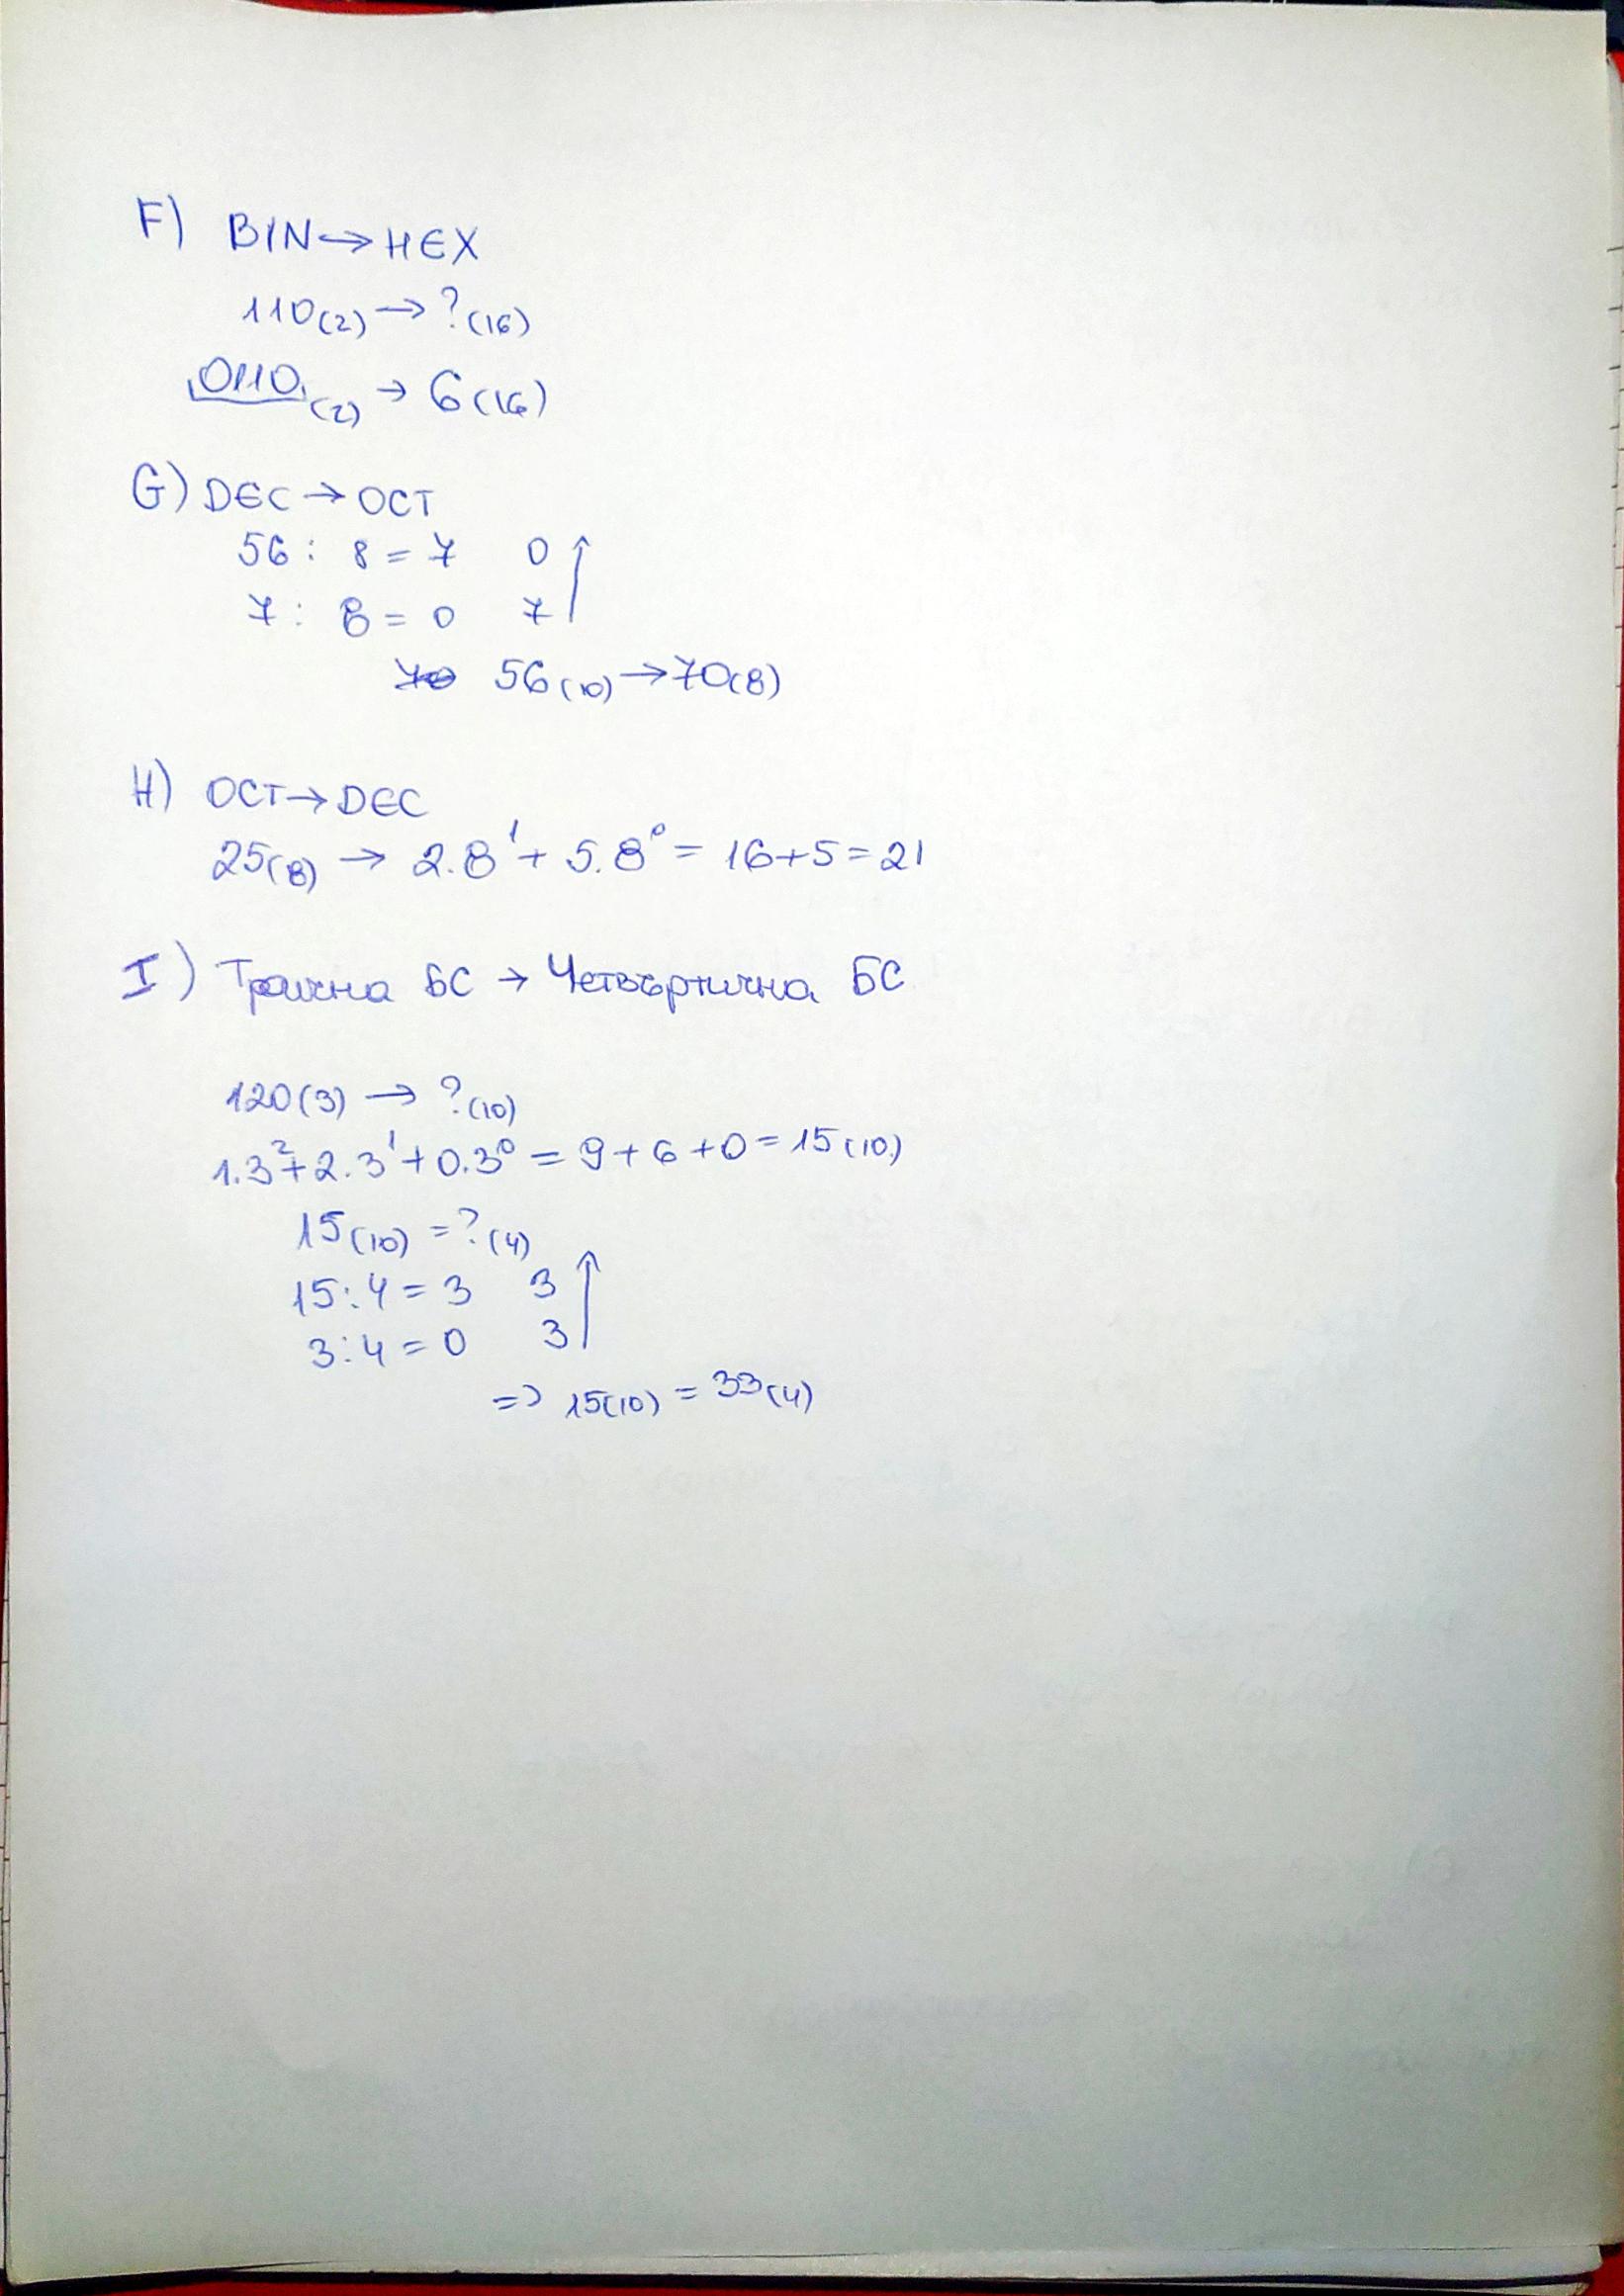 F) BIN→HEX
110(2)→?(16)
0110(2)→6(16)
G) DEC→OCT
56: 8=7 0
7: 8=0 7
56(10)→70(8)
H) OCT→DEC
25(8)→2.8¹+5.8⁰=16+5=21
I) Троична БС→Четвъртична БС
120(3)→?(10)
1.3²+2.3¹+0.3⁰=9+6+0=15(10)
15(10)=?(4)
15:4=3 3
3:4=0 3
=>15(10)=33(4)